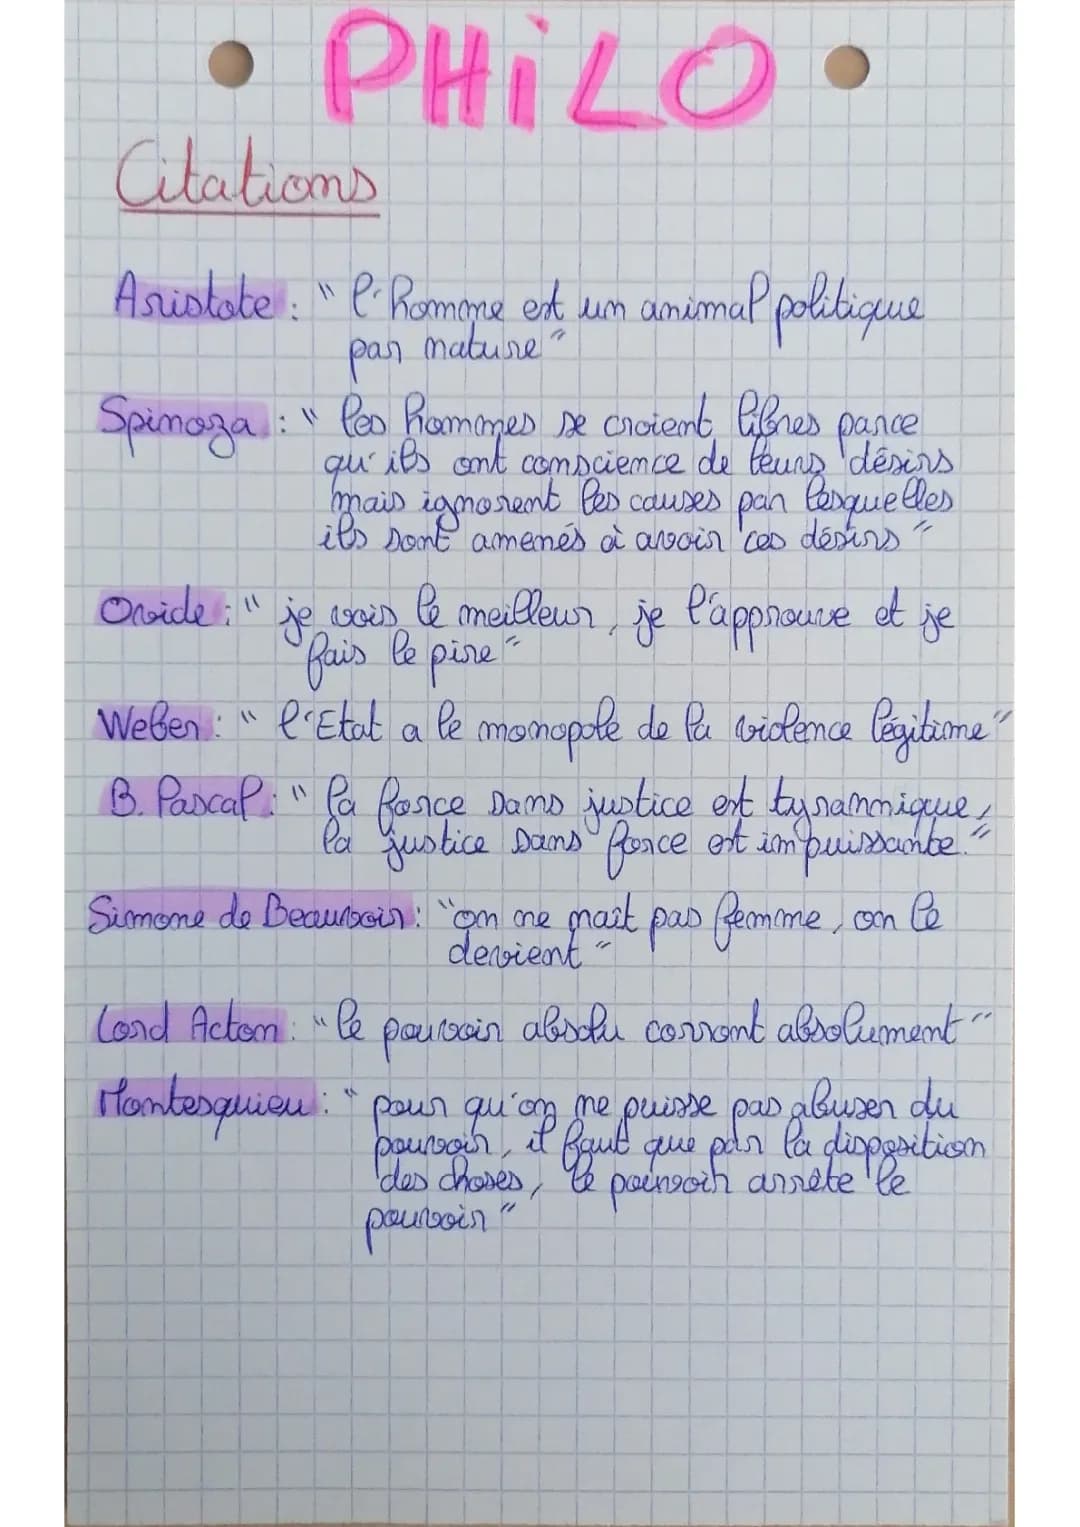 PHiLO
Citations
Aristote : " l'homme est un animal politique
par nature "
Spinoza : " les hommes se croient libres parce
qu'ils ont conscience de leurs désirs
mais ignorent les causes par lesquelles
ils sont amenés à avoir ces désirs "
Ovide : " je vois le meilleur, je l'approuve et je
fais le pire "
Weber : " l'Etat a le monopole de la violence légitime "
B. Pascal : " la force sans justice est tyrannique,
la justice sans force est impuissante. "
Simone de Beauvoir : " on ne naît pas femme, on le
devient "
Lord Acton : " le pouvoir absolu corront absolument "
Montesquieu : " pour qu'on ne puisse pas abuser du
pouvoir, il faut que par la disposition
des choses, le pouvoir arrête le
pouvoir "